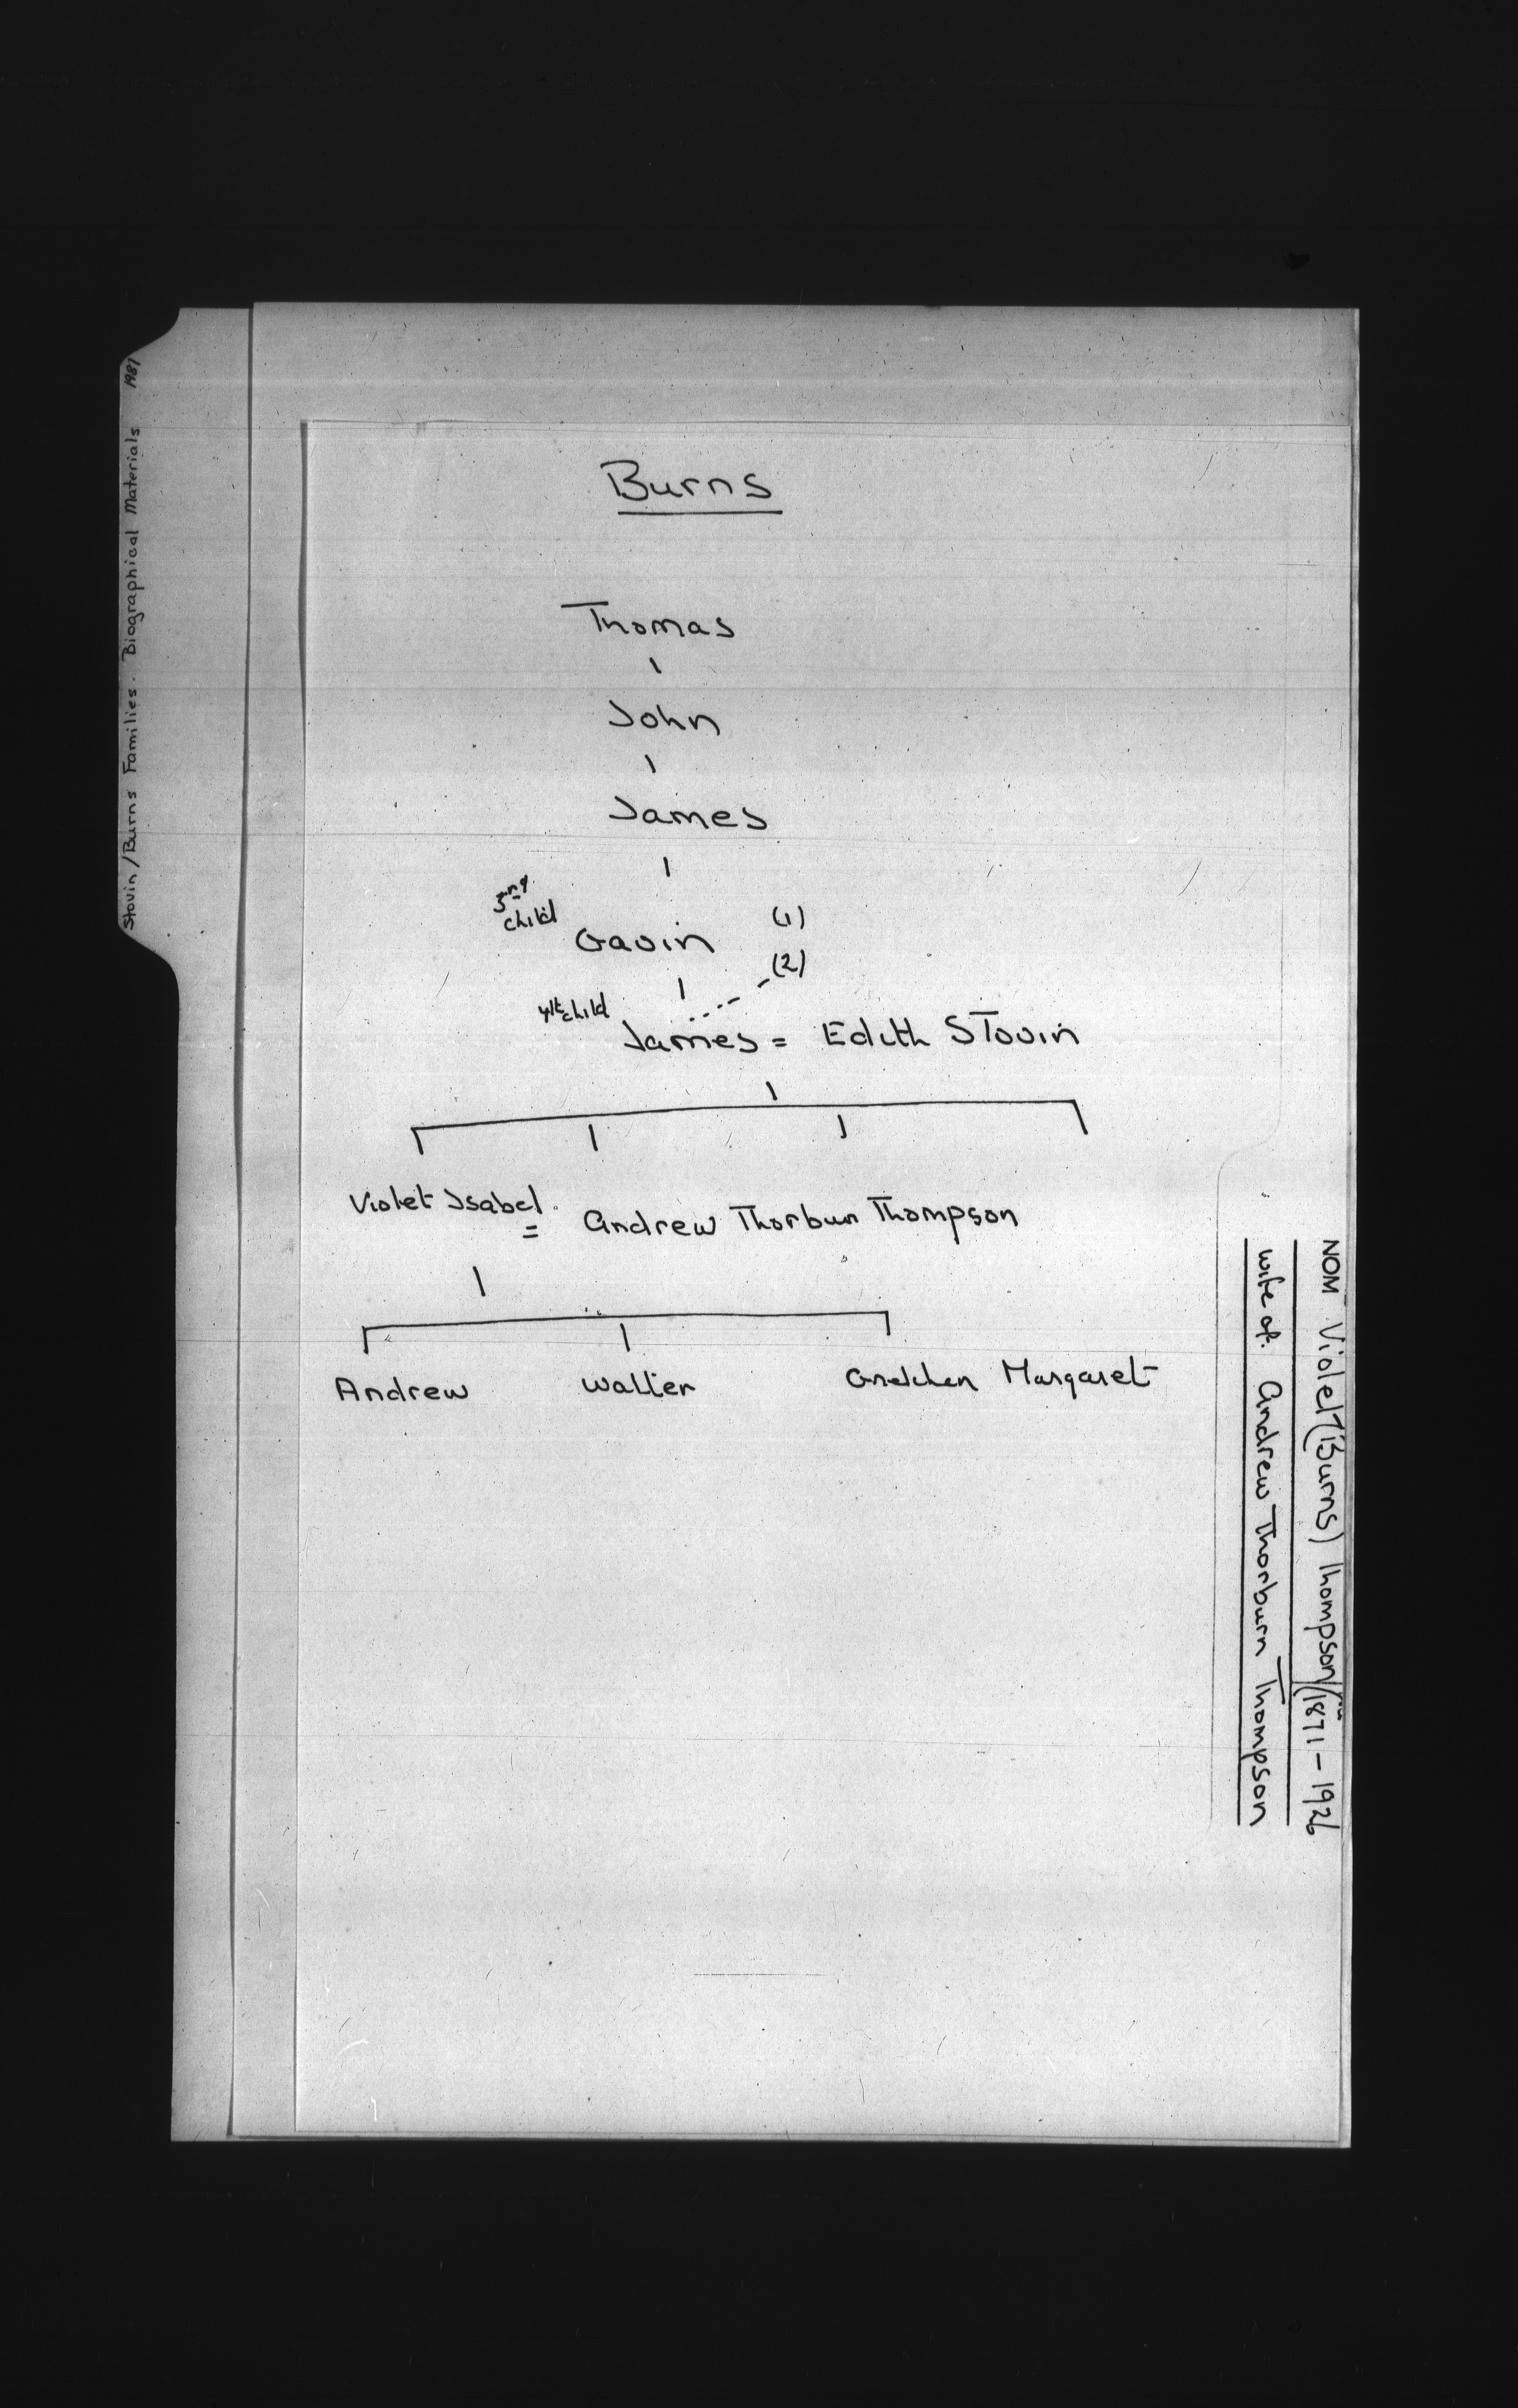 Stovin/Burns Families. Biographical Materials 1981
Burns
Thomas
John
James
3rd child
Gavin (1)
(2)
4th child
James = Edith Stovin
Violet Isabel = Andrew Thorburn Thompson
Andrew Walter Gretchen Margaret
NOM Violet (Burns) Thompson (1871-1926
wife of. Andrew Thorburn Thompson